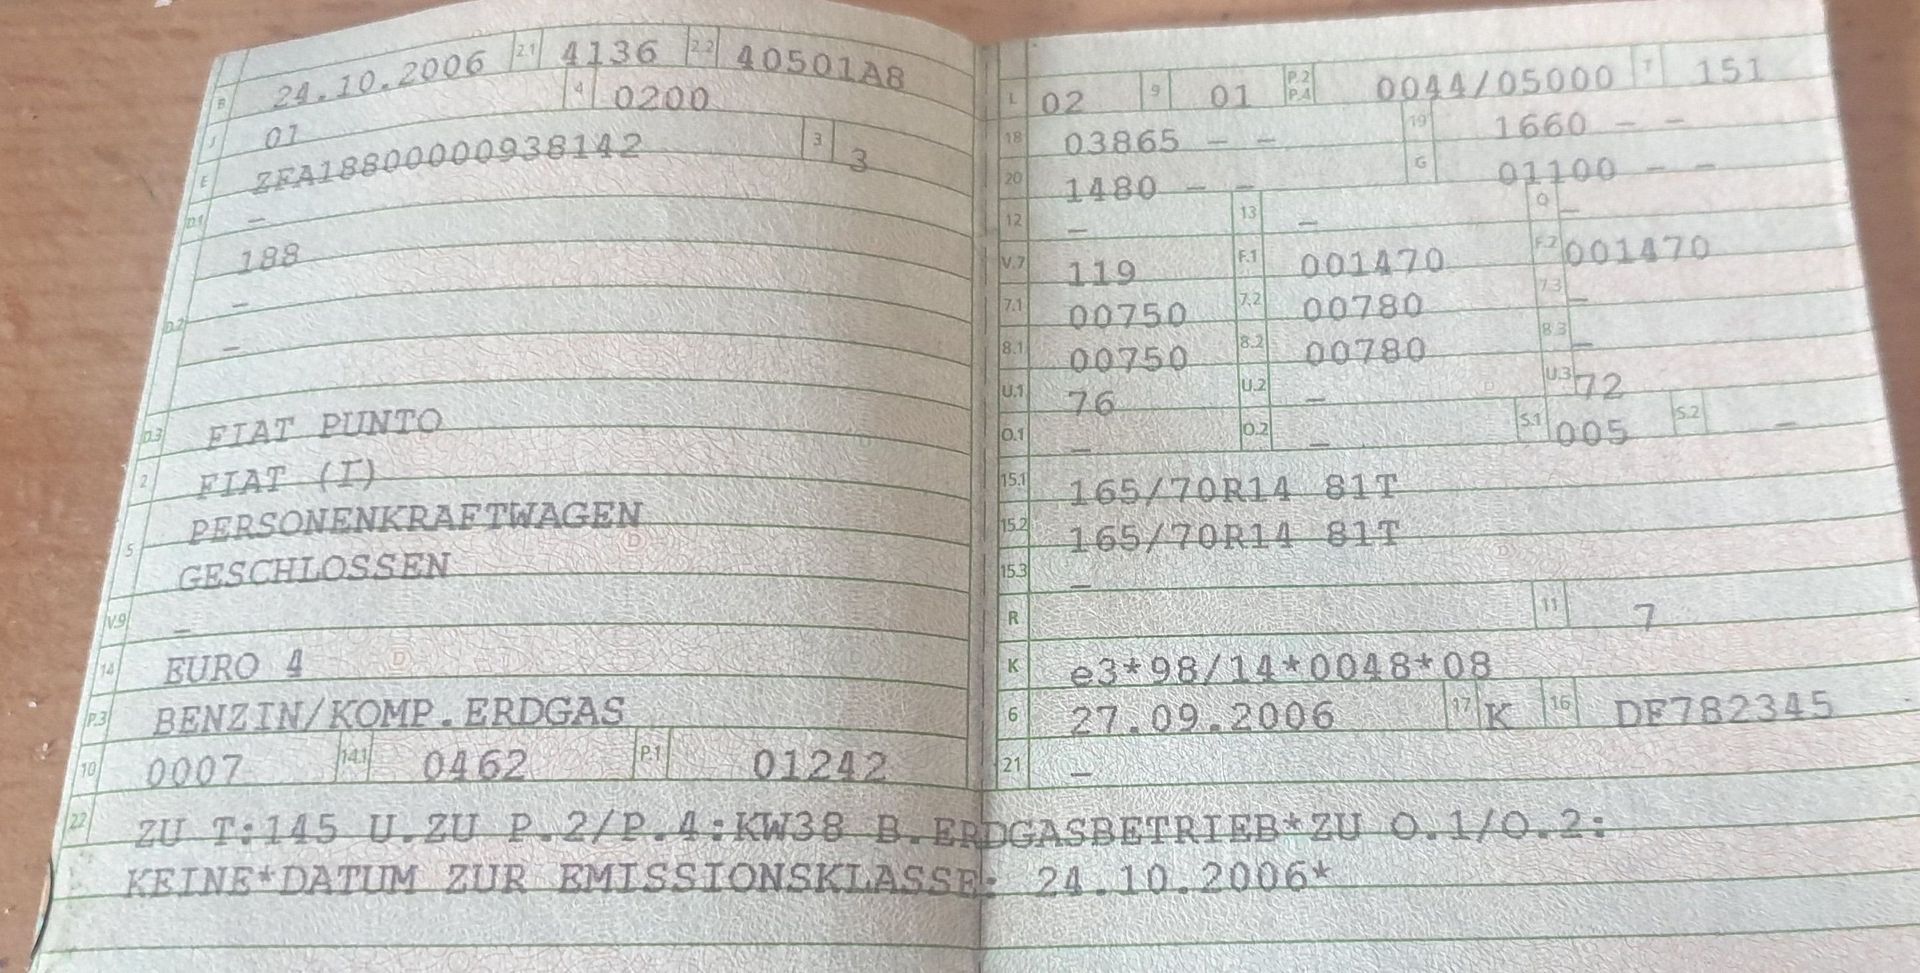 B 24.10.2006 2.1 4136 2.2 40501A8
J 01 4 0200
E ZFA18800000938142 3 3
D.1 –
188
D.2 –
–
D.3 FIAT PUNTO
2 FIAT (I)
5 PERSONENKRAFTWAGEN
GESCHLOSSEN
V.9 –
14 EURO 4
P.3 BENZIN/KOMP.ERDGAS
10 0007 14.1 0462 P.1 01242
L 02 9 01 P.2 P.4 0044/05000 T 151
18 03865 – – 19 1660 – –
20 1480 – – G 01100 – –
12 – 13 – Q –
V.7 119 F.1 001470 F.2 001470
7.1 00750 7.2 00780 7.3 –
8.1 00750 8.2 00780 8.3 –
U.1 76 U.2 – U.3 72
O.1 – O.2 – S.1 005 S.2 –
15.1 165/70R14 81T
15.2 165/70R14 81T
15.3 –
R 11 7
K e3*98/14*0048*08
6 27.09.2006 17 K 16 DF782345
21 –
22 ZU T:145 U.ZU P.2/P.4:KW38 B.ERDGASBETRIEB*ZU O.1/O.2:
KEINE*DATUM ZUR EMISSIONSKLASSE: 24.10.2006*